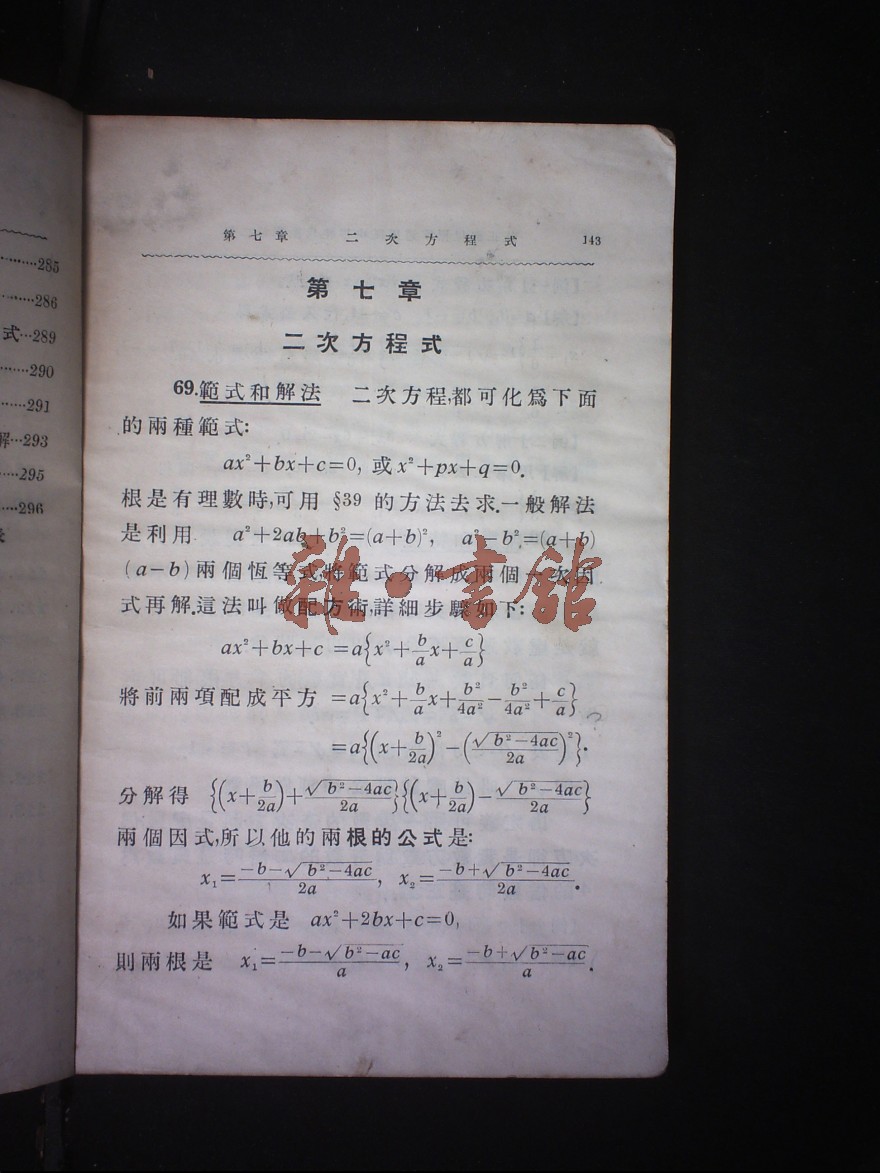 ······285
······286
式···289
······290
······291
解···293
······295
······296
第七章 二次方程式 143
第七章
二次方程式
69.範式和解法 二次方程,都可化爲下面
的兩種範式:
ax²+bx+c=0, 或x²+px+q=0.
根是有理數時,可用 §39 的方法去求.一般解法
是利用 a²+2ab+b²=(a+b)², a²−b²=(a+b)
(a−b)兩個恆等式,將範式分解成兩個一次因
式再解.這法叫做配方術,詳細步驟如下:
雜·書館
ax²+bx+c =a{x²+b/a x+c/a}
將前兩項配成平方 =a{x²+b/a x+b²/4a²−b²/4a²+c/a}
=a{(x+b/2a)²−(√b²−4ac/2a)²}.
分解得 {(x+b/2a)+√b²−4ac/2a}{(x+b/2a)−√b²−4ac/2a}
兩個因式,所以他的兩根的公式是:
x₁=−b−√b²−4ac/2a, x₂=−b+√b²−4ac/2a.
如果範式是 ax²+2bx+c=0,
則兩根是 x₁=−b−√b²−ac/a, x₂=−b+√b²−ac/a.